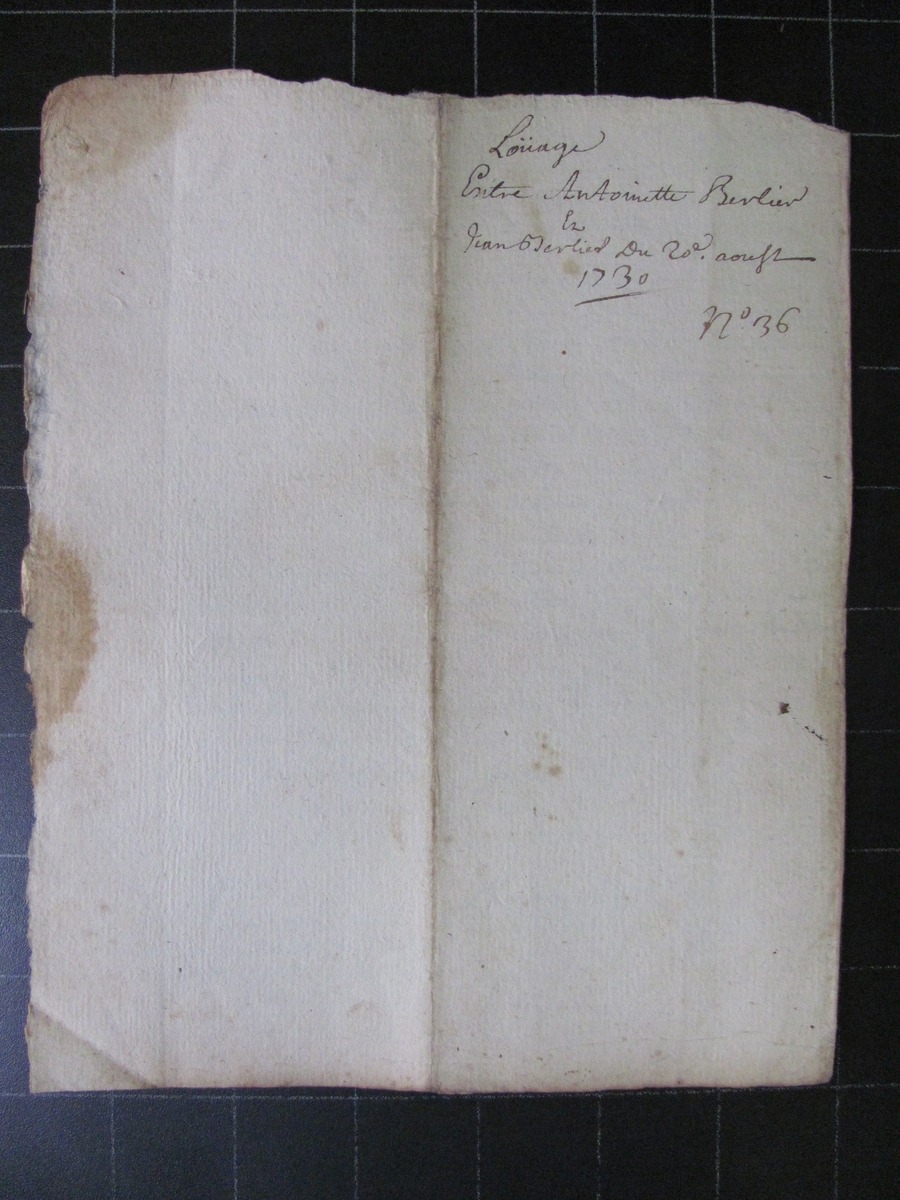 Loüage
Entre Antoinette Berlier
Et
Jean Berlier Du 20e. aoust
1730
No. 36